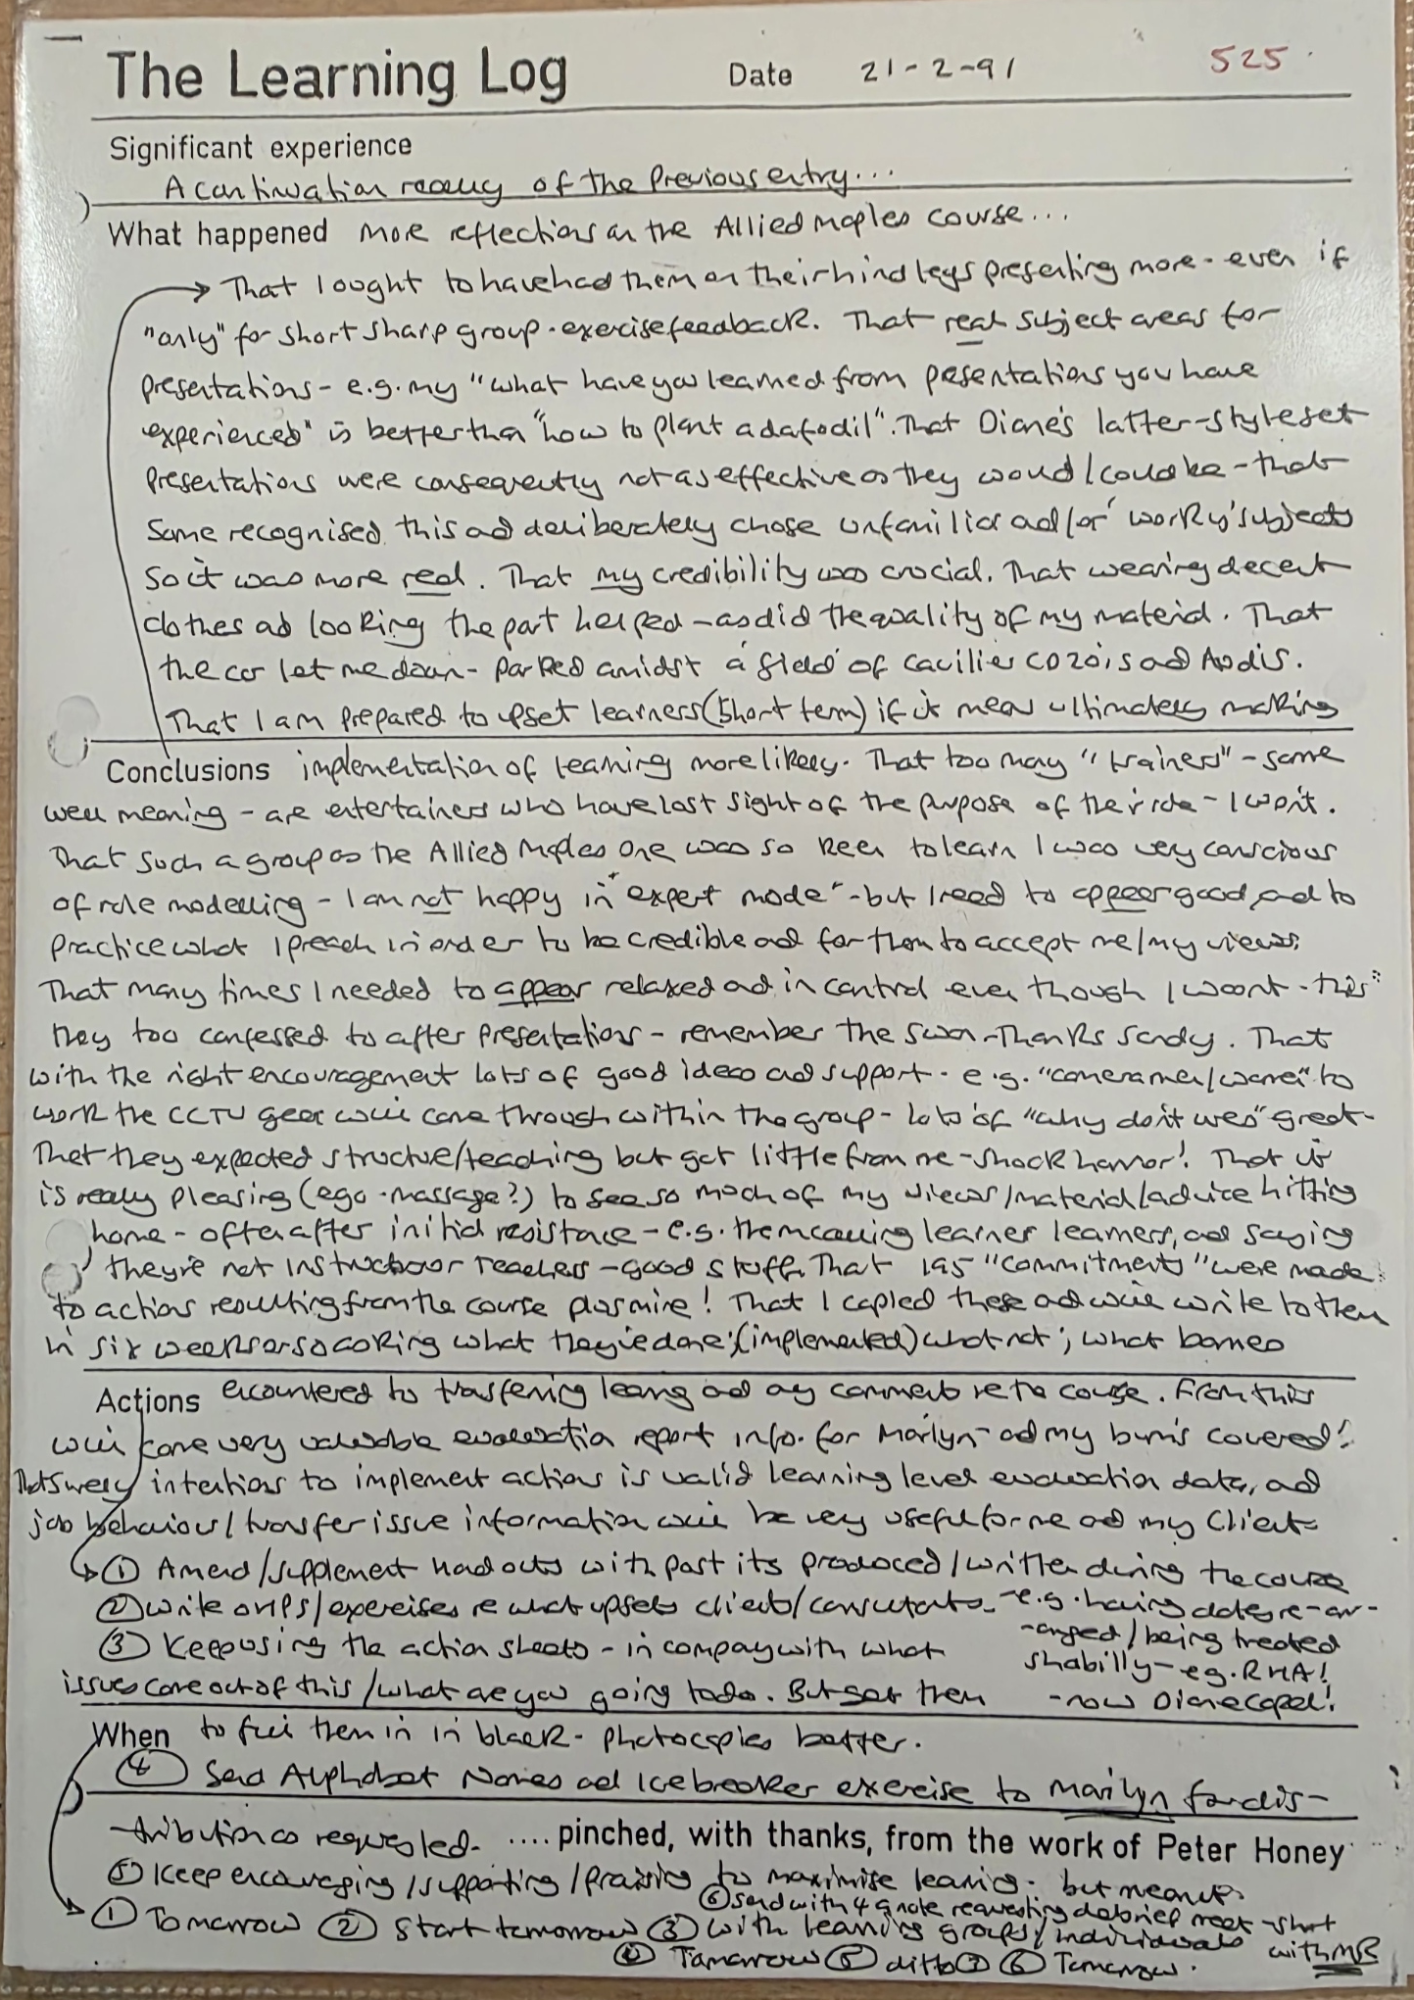 The Learning Log Date 21-2-91 525
Significant experience
A continuation really of the previous entry...
What happened More reflections on the Allied Maples course...
That I ought to have had them on their hind legs presenting more - even if
"only" for short sharp group-exercise feedback. That real subject areas for
presentations - e.g. my "what have you learned from presentations you have
experienced" is better than "how to plant a dafodil". That Diane's latter-style set
presentations were consequently not as effective as they would/could be - that
some recognised this and deliberately chose unfamiliar and/or 'worky' subjects
so it was more real. That my credibility was crucial. That wearing decent
clothes and looking the part helped - as did the quality of my material. That
the car let me down - parked amidst a 'field' of Cavilier CDZOi's and Audis.
That I am prepared to upset learners (short term) if it means ultimately making
Conclusions implementation of learning more likely. That too many "trainers" - some
well meaning - are entertainers who have lost sight of the purpose of their role - I won't.
That such a group as the Allied Maples one was so keen to learn I was very conscious
of role modelling - I am not happy in "expert mode" - but I need to appear good, and to
practice what I preach in order to be credible and for them to accept me/my views.
That many times I needed to appear relaxed and in control even though I wasn't - this
they too confessed to after presentations - remember the swan - Thanks Sandy. That
with the right encouragement lots of good ideas and support - e.g. "cameramen/women" to
work the CCTV gear will come through within the group - lots of "why don't wes" great -
That they expected structure/teaching but got little from me - shock horror! That it
is really pleasing (ego-massage?) to see so much of my views/material/advice hitting
home - often after initial resistance - e.g. them calling learner learners, and saying
they're not instructor teachers - good stuff. That 195 "commitments" were made
to actions resulting from the course plus mine! That I copied these and will write to them
in six weeks or so asking what they've done; (implemented) what not; what barriers
Actions encountered to transferring learning and any comments re the course. From this
will come very valuable evaluation report info. for Marilyn - and my bum's covered!
That surely intentions to implement actions is valid learning level evaluation data, and
job behaviour/transfer issue information will be very useful for me and my client
① Amend/supplement handouts with post its produced/written during the course
② Write OHPS/exercises re what upsets clients/consultants - e.g. having dates re-arr-
-anged/being treated
③ Keep using the action sheets - in company with what
shabilly - eg. RHA!
issues come out of this/what are you going to do. But get them
- now Diane Copel!
When to fill them in in black - photocopies better.
④ Send Alphabet Names and Icebreaker exercise to Marilyn for dis-
-tribution as requested. ....pinched, with thanks, from the work of Peter Honey
⑤ Keep encouraging/supporting/praising to maximise learning. but mean it.
⑥ send with 4 a note requesting debrief meet - short
with MR
① Tomorrow ② Start tomorrow ③ With learning groups/individuals
④ Tomorrow ⑤ ditto ③ ⑥ Tomorrow.